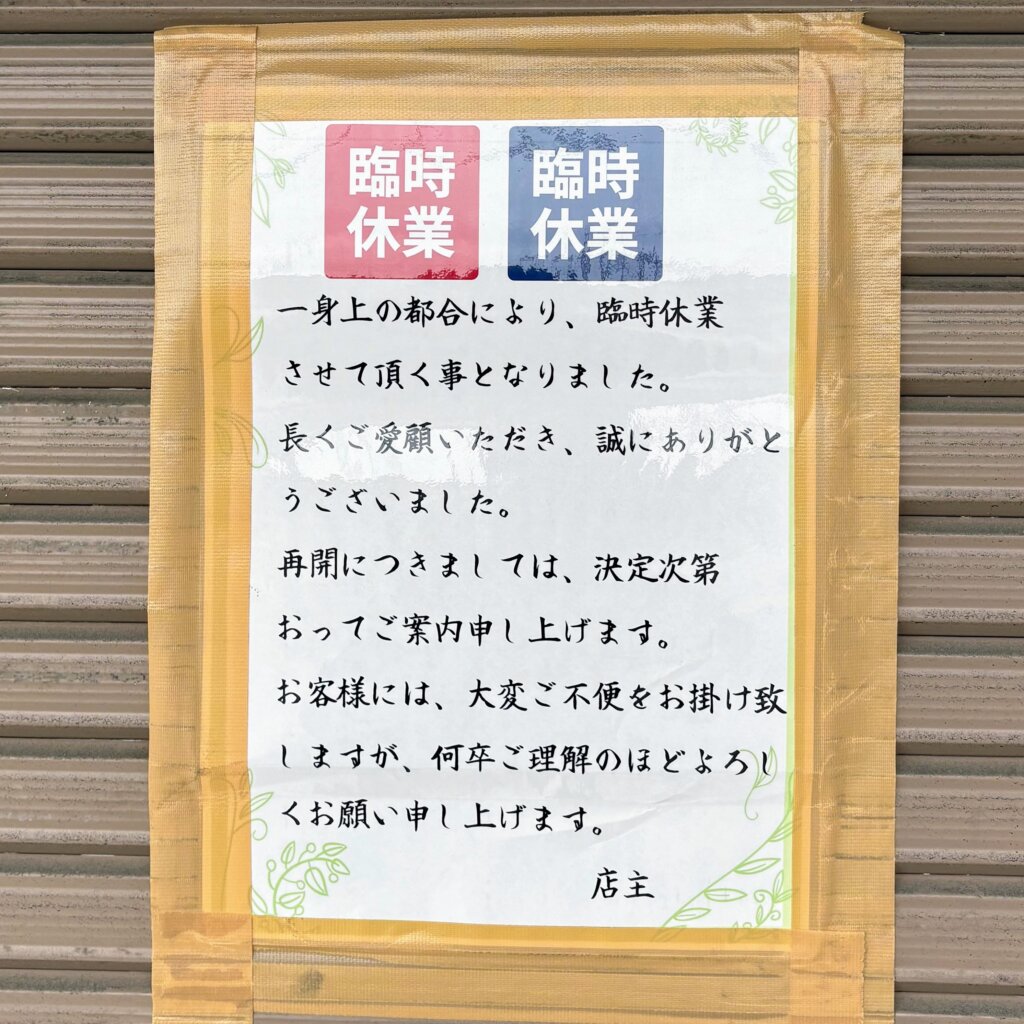 臨時
休業
臨時
休業
一身上の都合により、臨時休業
させて頂く事となりました。
長くご愛顧いただき、誠にありがと
うございました。
再開につきましては、決定次第
おってご案内申し上げます。
お客様には、大変ご不便をお掛け致
しますが、何卒ご理解のほどよろし
くお願い申し上げます。
店主